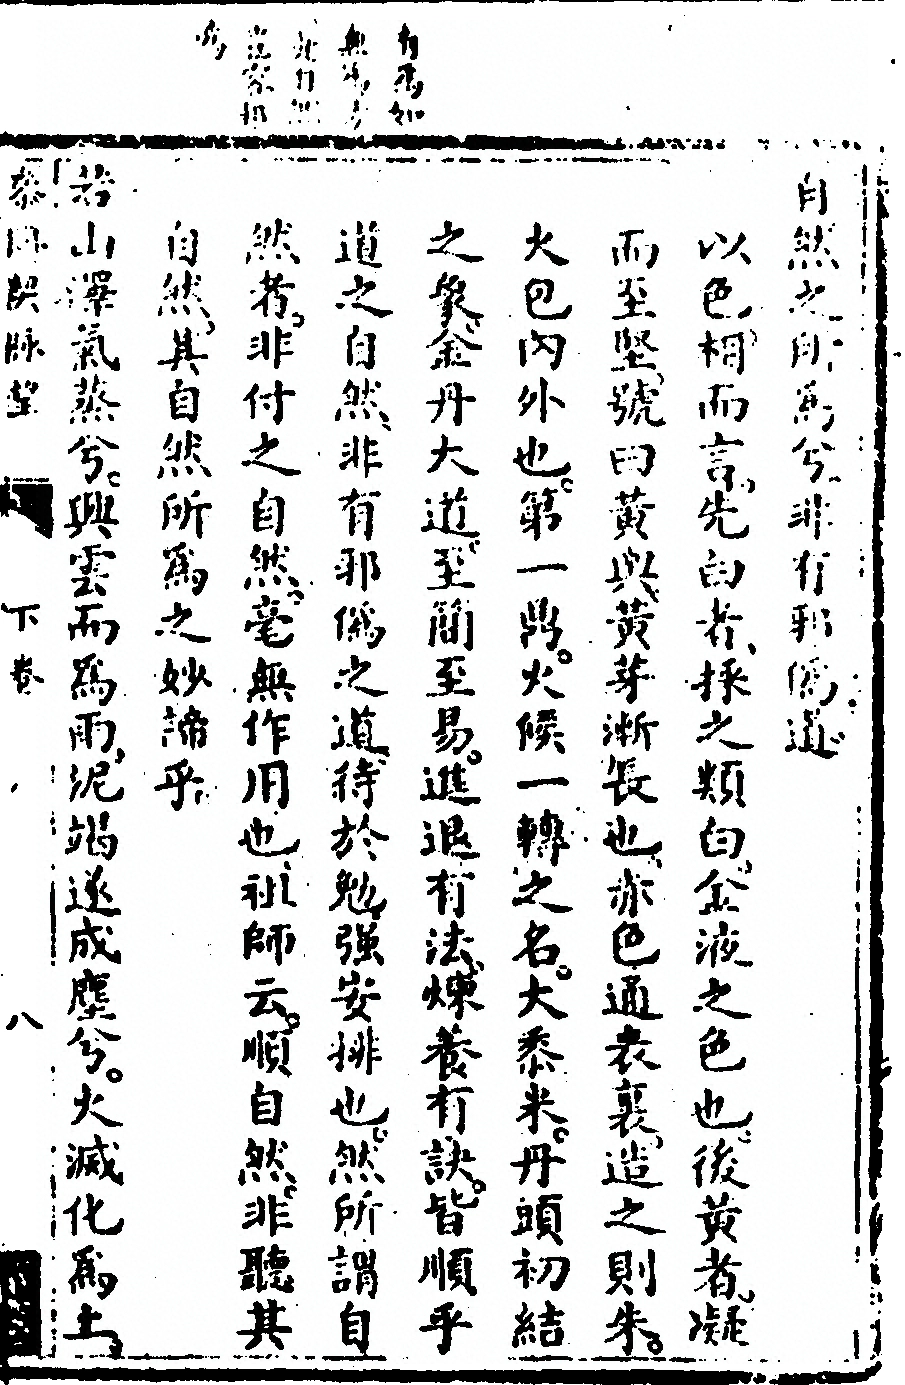 自然之所爲兮非有邪僞道
以色相而言先白者採之類白金液之色也後黃者凝
而至堅號曰黃輿黃芽漸長也赤色通表裏造之則朱
火包內外也第一鼎火候一轉之名大黍米丹頭初結
之象金丹大道至簡至易進退有法煉養有訣皆順乎
道之自然非有邪僞之道待於勉强安排也然所謂自
然者非付之自然毫無作用也祖師云順自然非聽其
自然其自然所爲之妙諦乎
若山澤氣蒸兮興雲而爲雨泥竭遂成塵兮火滅化爲土
參同契脉望
下卷
八